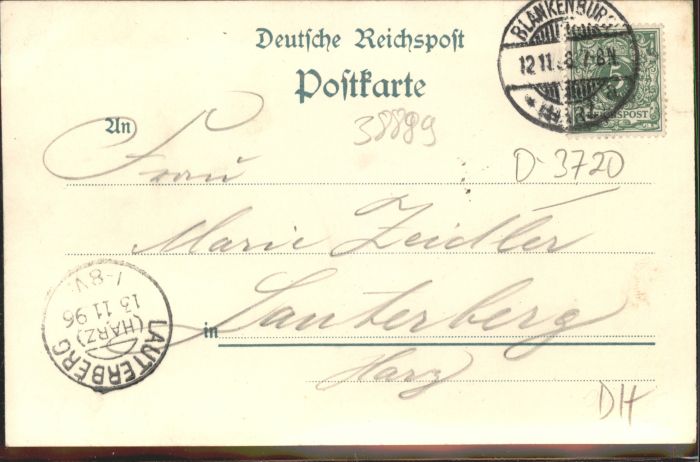 Deutsche Reichspost
Postkarte
BLANKENBURG
12 11 7-8N
* (HARZ)
5
REICHSPOST
38889
An
Frau
D-3720
Marie Zeidler
in Lauterberg
Harz
LAUTERBERG
(HARZ)
13 11 96
7-8V.
DH